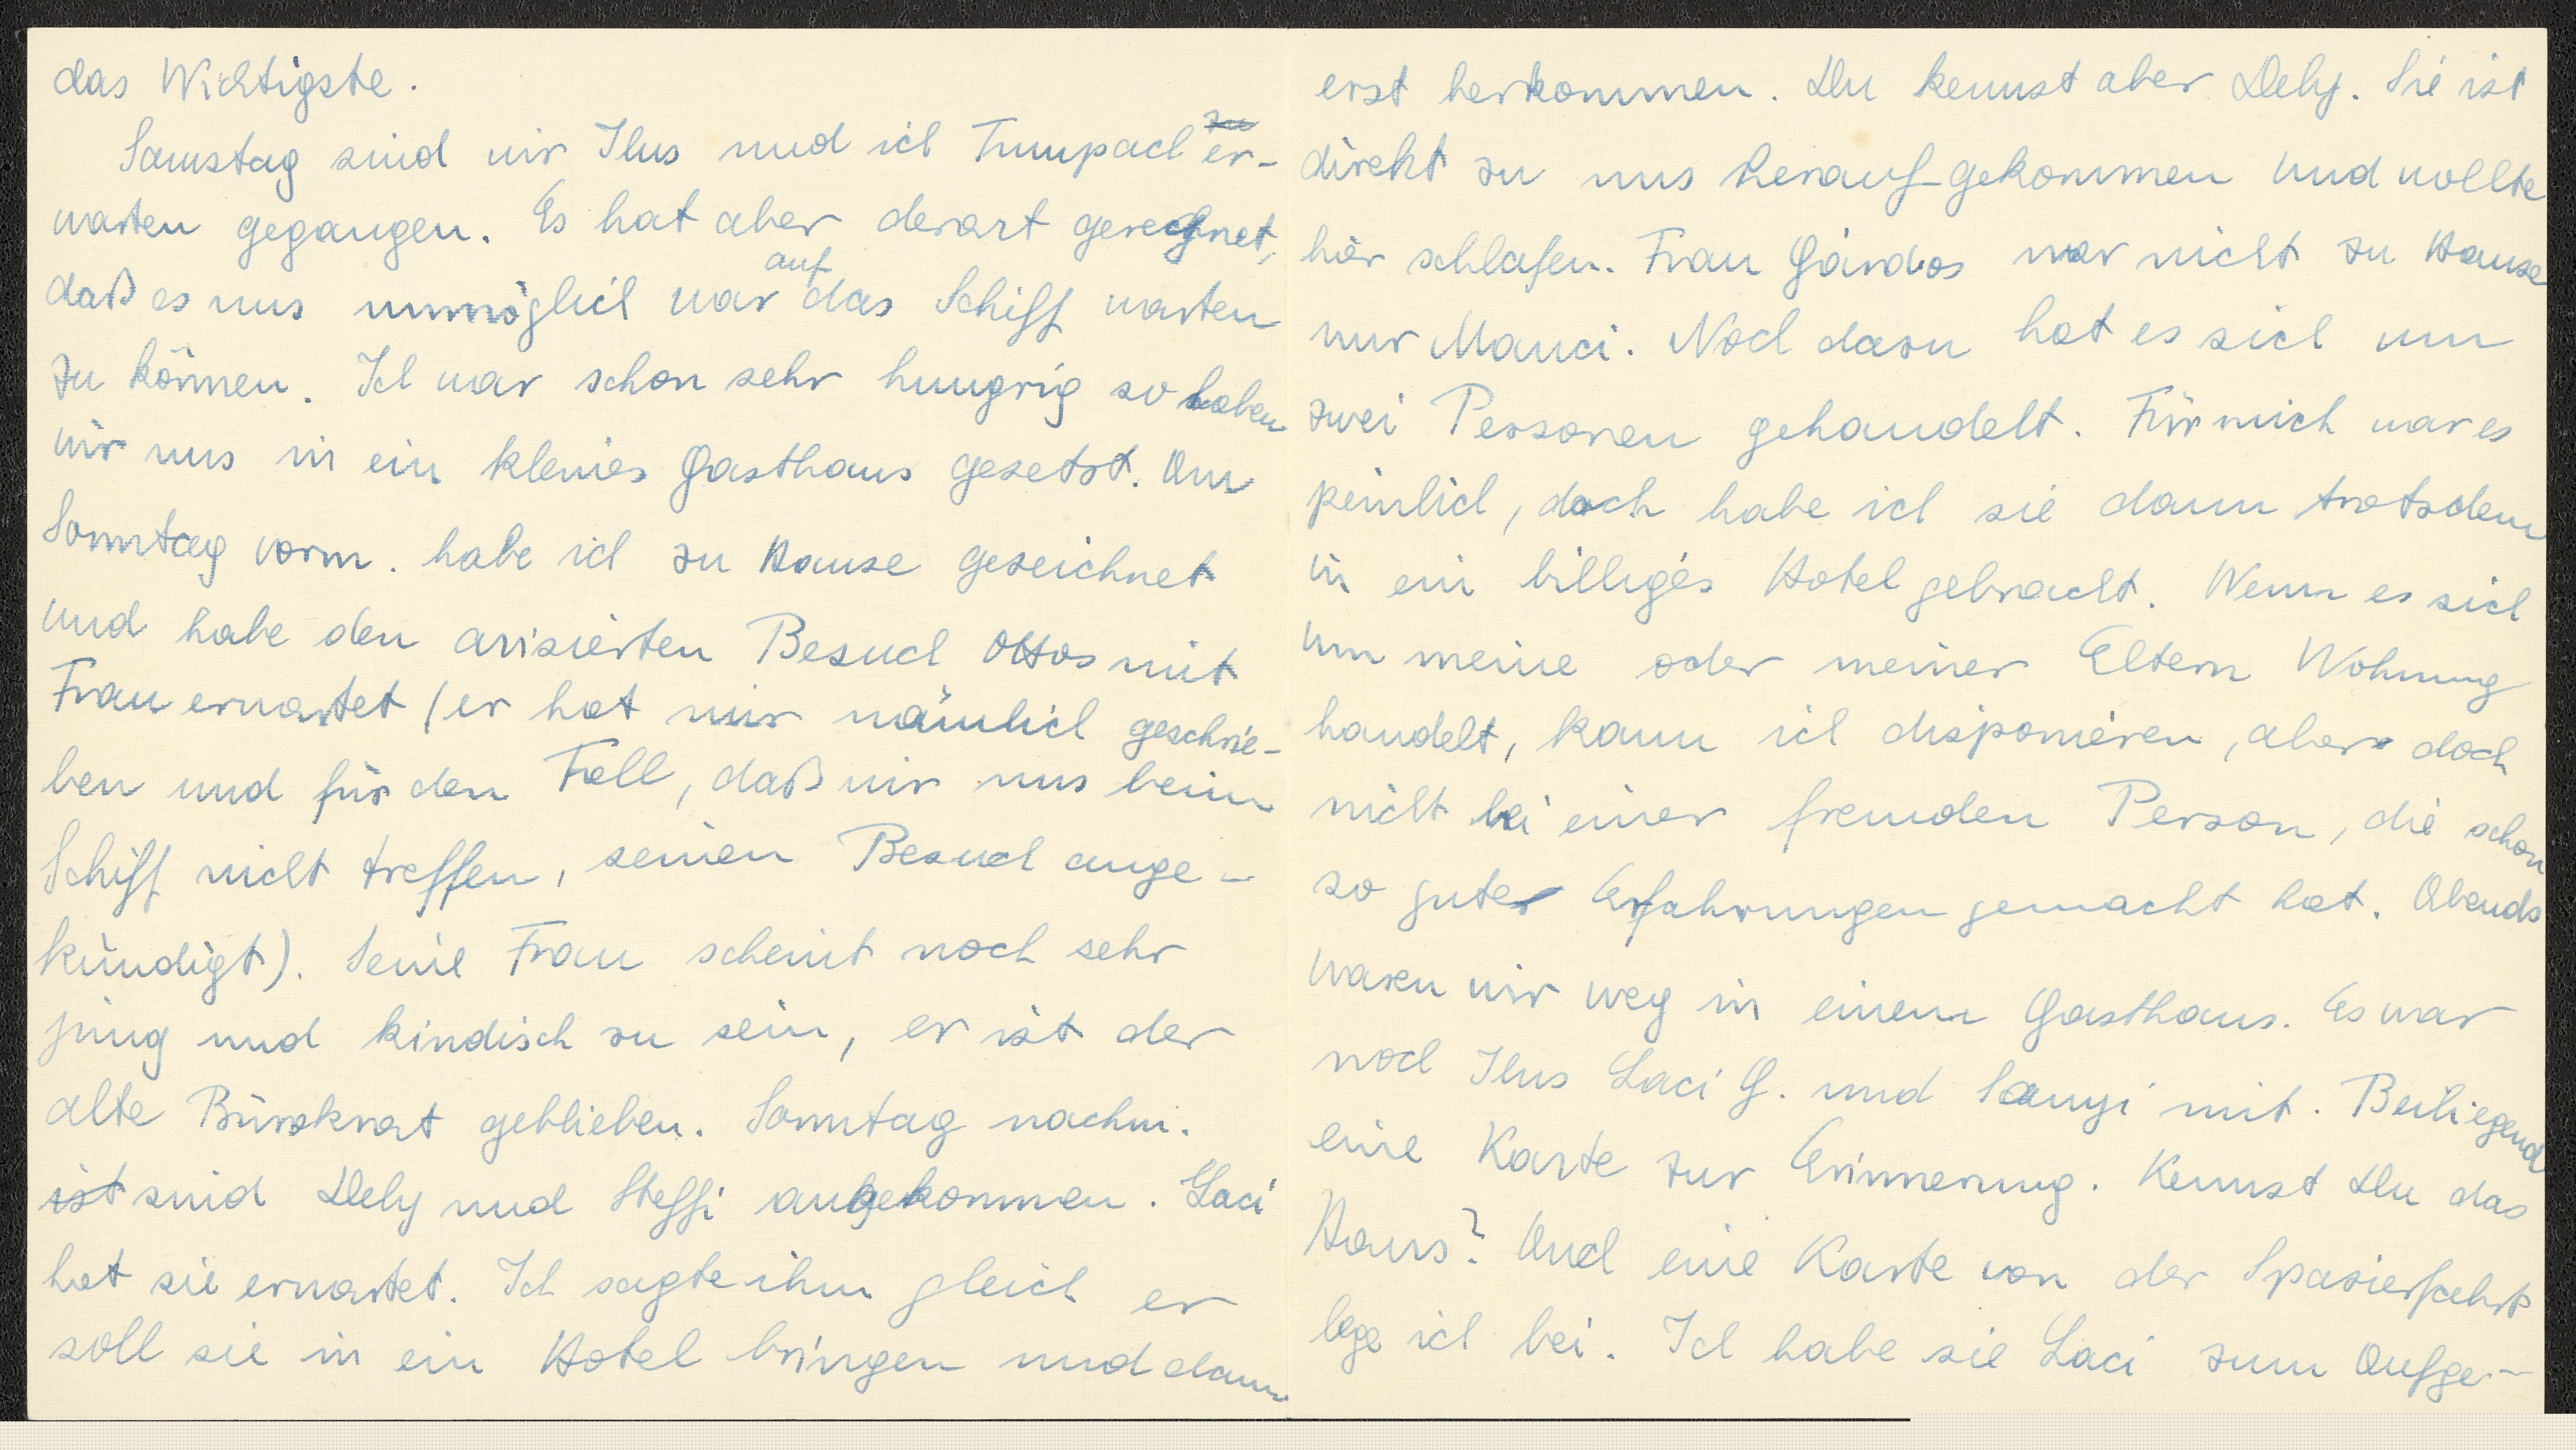 das Wichtigste.
Samstag sind wir Ilus und ich Tumpach er-
warten gegangen. Es hat aber derart geregnet,
daß es uns unmöglich war auf das Schiff warten
zu können. Ich war schon sehr hungrig so haben
wir uns in ein kleines Gasthaus gesetzt. Am
Sonntag vorm. habe ich zu Hause gezeichnet
und habe den avisierten Besuch Ottos mit
Frau erwartet (er hat mir nämlich geschrie-
ben und für den Fall, daß wir uns beim
Schiff nicht treffen, seinen Besuch ange-
kündigt). Seine Frau scheint noch sehr
jung und kindisch zu sein, er ist der
alte Bürokrat geblieben. Sonntag nachm.
ist sind Dely und Steffi angekommen. Laci
hat sie erwartet. Ich sagte ihm gleich er
soll sie in ein Hotel bringen und dann
erst herkommen. Du kennst aber Dely. Sie ist
direkt zu uns herauf-gekommen und wollte
hier schlafen. Frau Gárdos war nicht zu Hause
nur Manci. Noch dazu hat es sich um
zwei Personen gehandelt. Für mich war es
peinlich, doch habe ich sie dann trotzdem
in ein billiges Hotel gebracht. Wenn es sich
um meine oder meiner Eltern Wohnung
handelt, kann ich disponieren, aber doch
nicht bei einer fremden Person, die schon
so gute Erfahrungen gemacht hat. Abends
waren wir weg in einem Gasthaus. Es war
noch Ilus Laci G. und Sanyi mit. Beiliegend
eine Karte zur Erinnerung. Kennst Du das
Haus? Auch eine Karte von der Spazierfahrt
lege ich bei. Ich habe sie Laci zum Aufge-